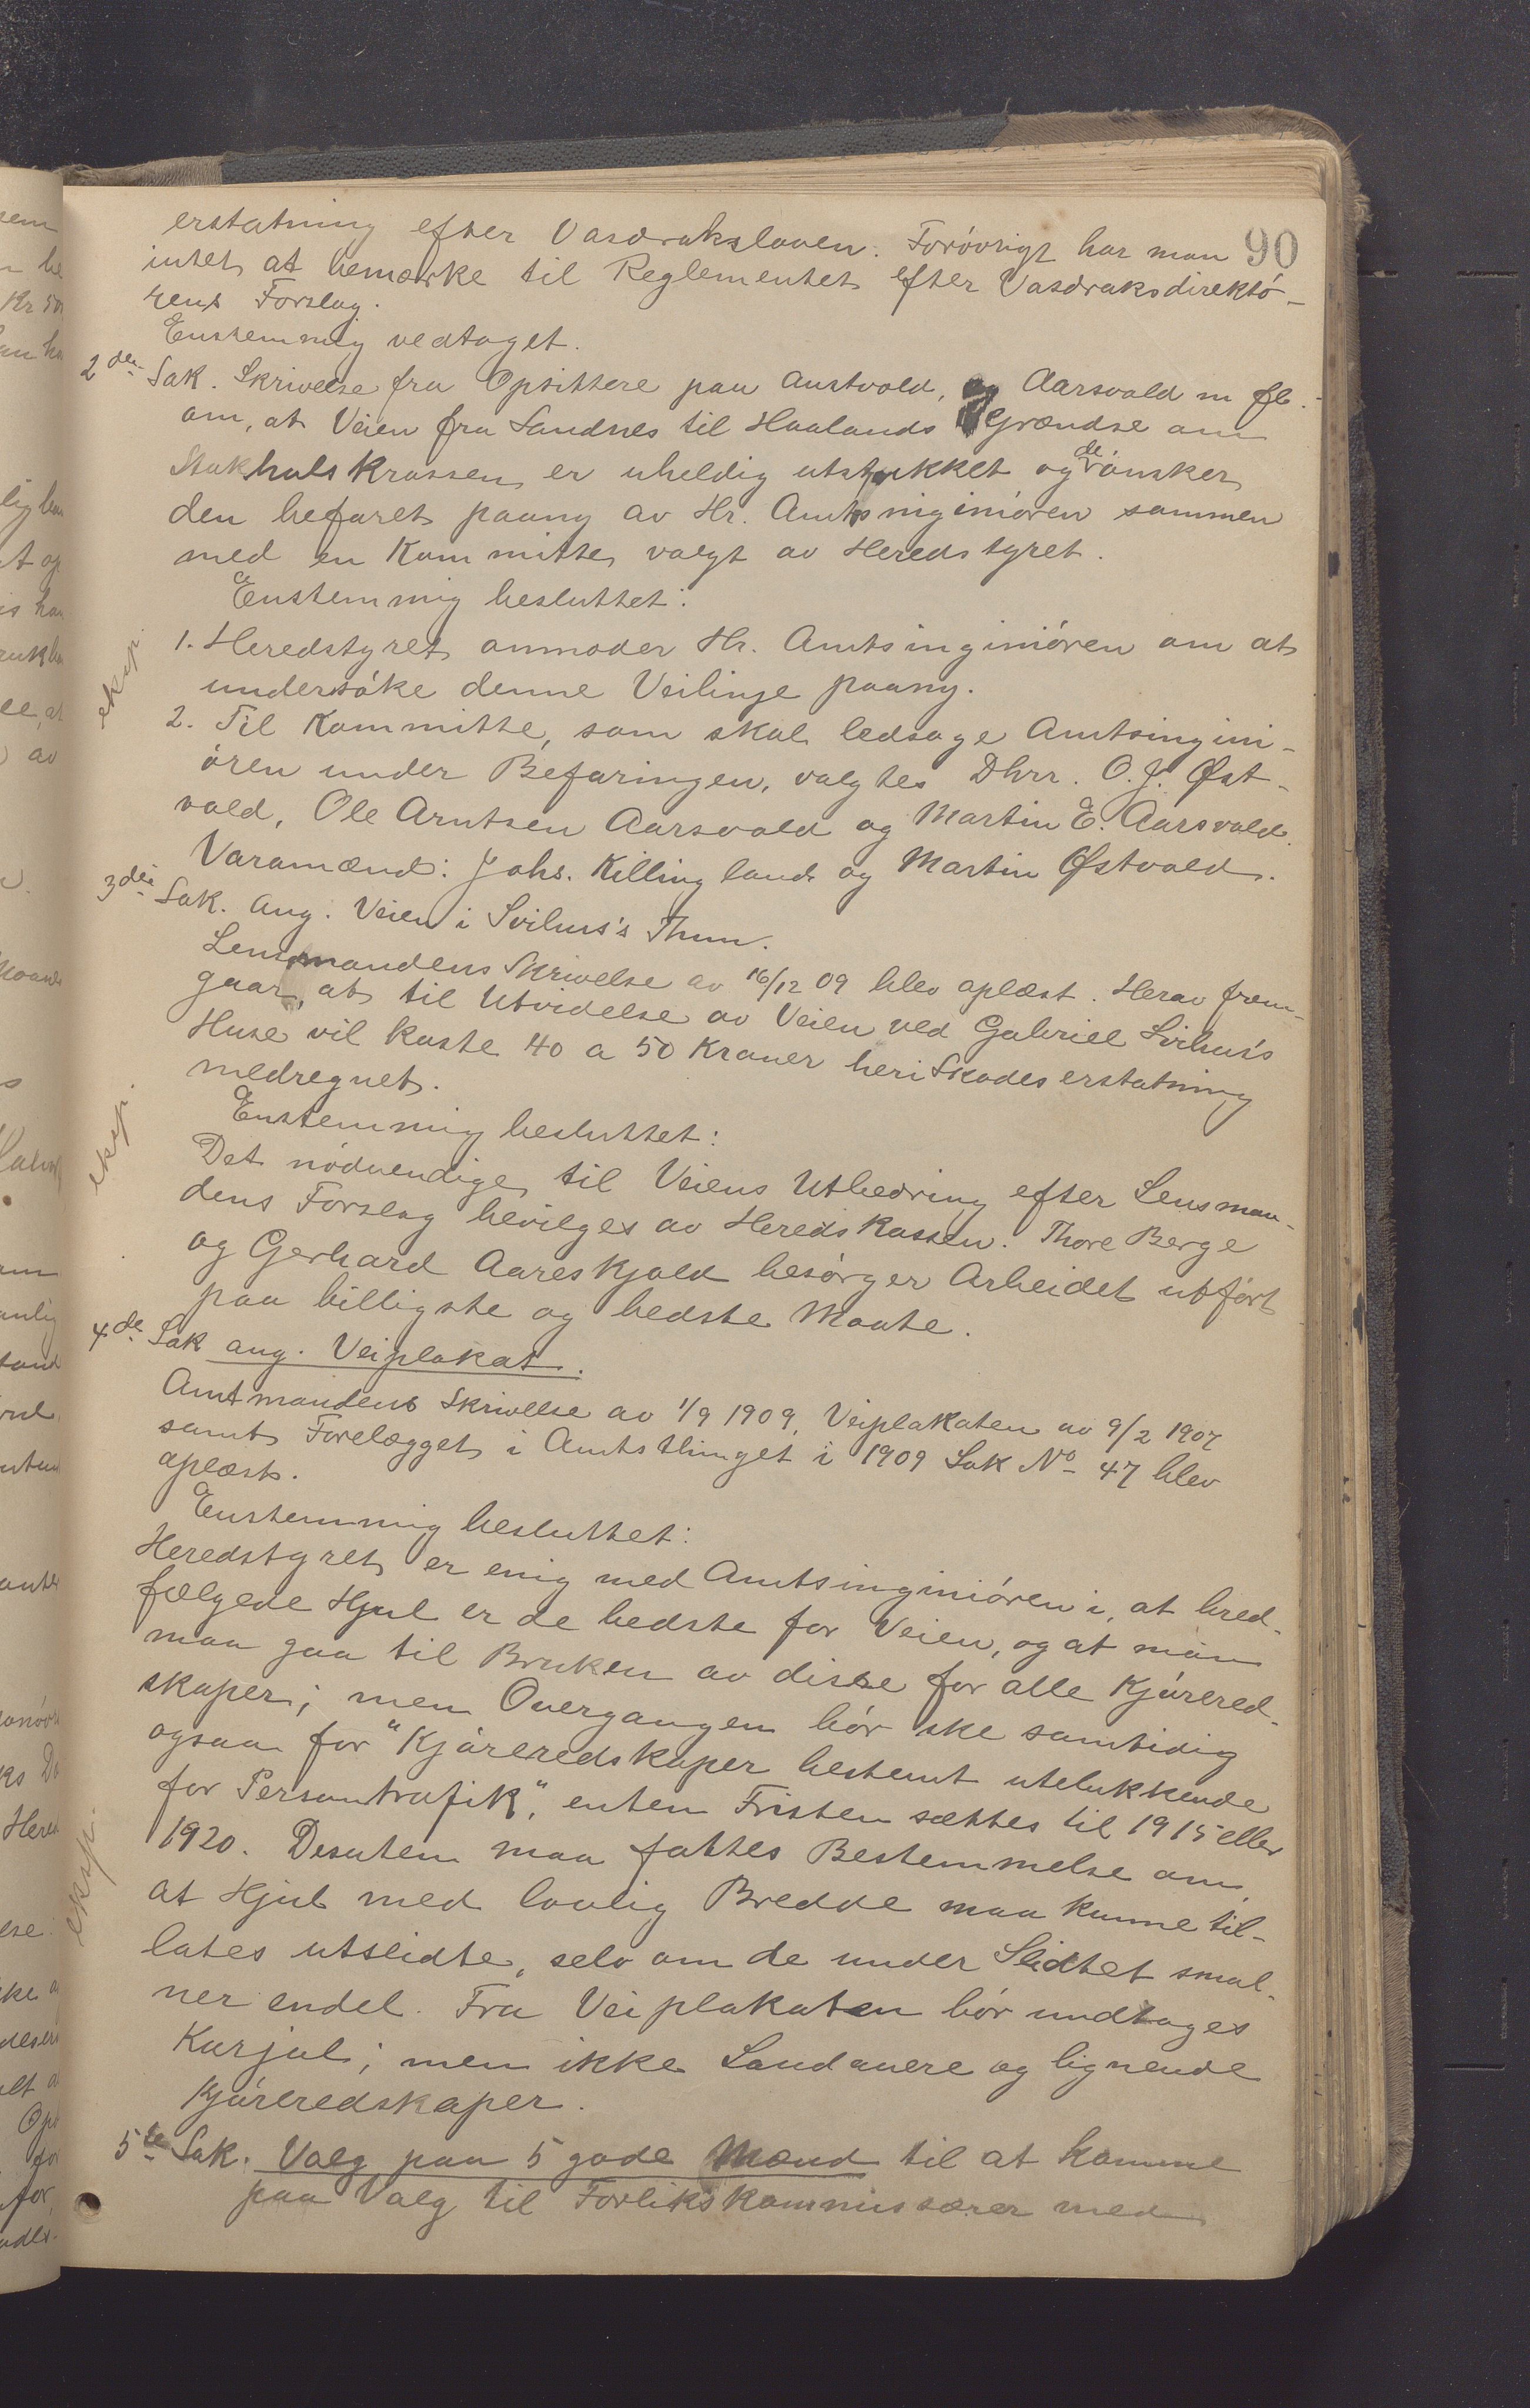 90
erstatning efter Vasdraksloven. Forövrigt har man
intet at bemærke til Reglementet efter Vasdraksdirektö-
rens Forslag.
Enstemmig vedtaget.
2den Sak. Skrivelse fra Opsittere paa Austvold, og Aarsvold m fl.
om, at Veien fra Sandnes til Haalands Grændse om
Stokholskrossen er uheldig utstukket og de önsker
den befaret paany av Hr. Amtsinginiören sammen
med en Kommitte valgt av Heredstyret.
Enstemmig besluttet:
1. Heredstyret anmoder Hr. Amtsinginiören om at
undersöke denne Veilinje paany.
eksp.
2. Til Kommitte, som skal ledsage Amtsingini-
ören under Befaringen, valgtes Dhrr. O. J. Øst-
vold, Ole Arntsen Aarsvold og Martin E. Aarsvold.
Varamænd: Johs. Killingland og Martin Østvold.
3die Sak. Ang. Veien i Svihus's Thun.
Lensmandens Skrivelse av 16/12 09 blev oplæst. Herav frem-
gaar, at til Utvidelse av Veien ved Gabriel Svihus's
Huse vil koste 40 a 50 Kroner heri Skadeserstatning
medregnet.
Enstemmig besluttet:
eksp.
Det nödvendige til Veiens Utbedring efter Lensman-
dens Forslag bevilges av Heredskassen. Thore Berge
og Gerhard Aareskjold besörger Arbeidet utfört
paa billigste og bedste Maate.
4de Sak ang. Veiplakat.
Amtmandens Skrivelse av 1/9 1909, Veiplakaten av 9/2 1907
samt Forelægget i Amtsthinget i 1909 Sak No 47 blev
oplæst.
Enstemmig besluttet:
Heredstyret er enig med Amtsinginiören i, at bred-
fælgede Hjul er de bedste for Veien, og at man
maa gaa til Bruken av disse for alle Kjörered-
skaper; men Overgangen bör ske samtidig
ogsaa for "Kjöreredskaper bestemt utelukkende
for Persontrafik", enten Fristen sættes til 1915 eller
1920. Desuten maa fattes Bestemmelse om,
eksp.
at Hjul med lovlig Bredde maa kunne til-
lates utslidte, selv om de under Slidtet smal-
ner endel. Fra Veiplakaten bör undtages
Karjol; men ikke Landauere og lignende
Kjöreredskaper.
5te Sak. Valg paa 5 gode Mænd til at komme
paa Valg til Forlikskommissærer med